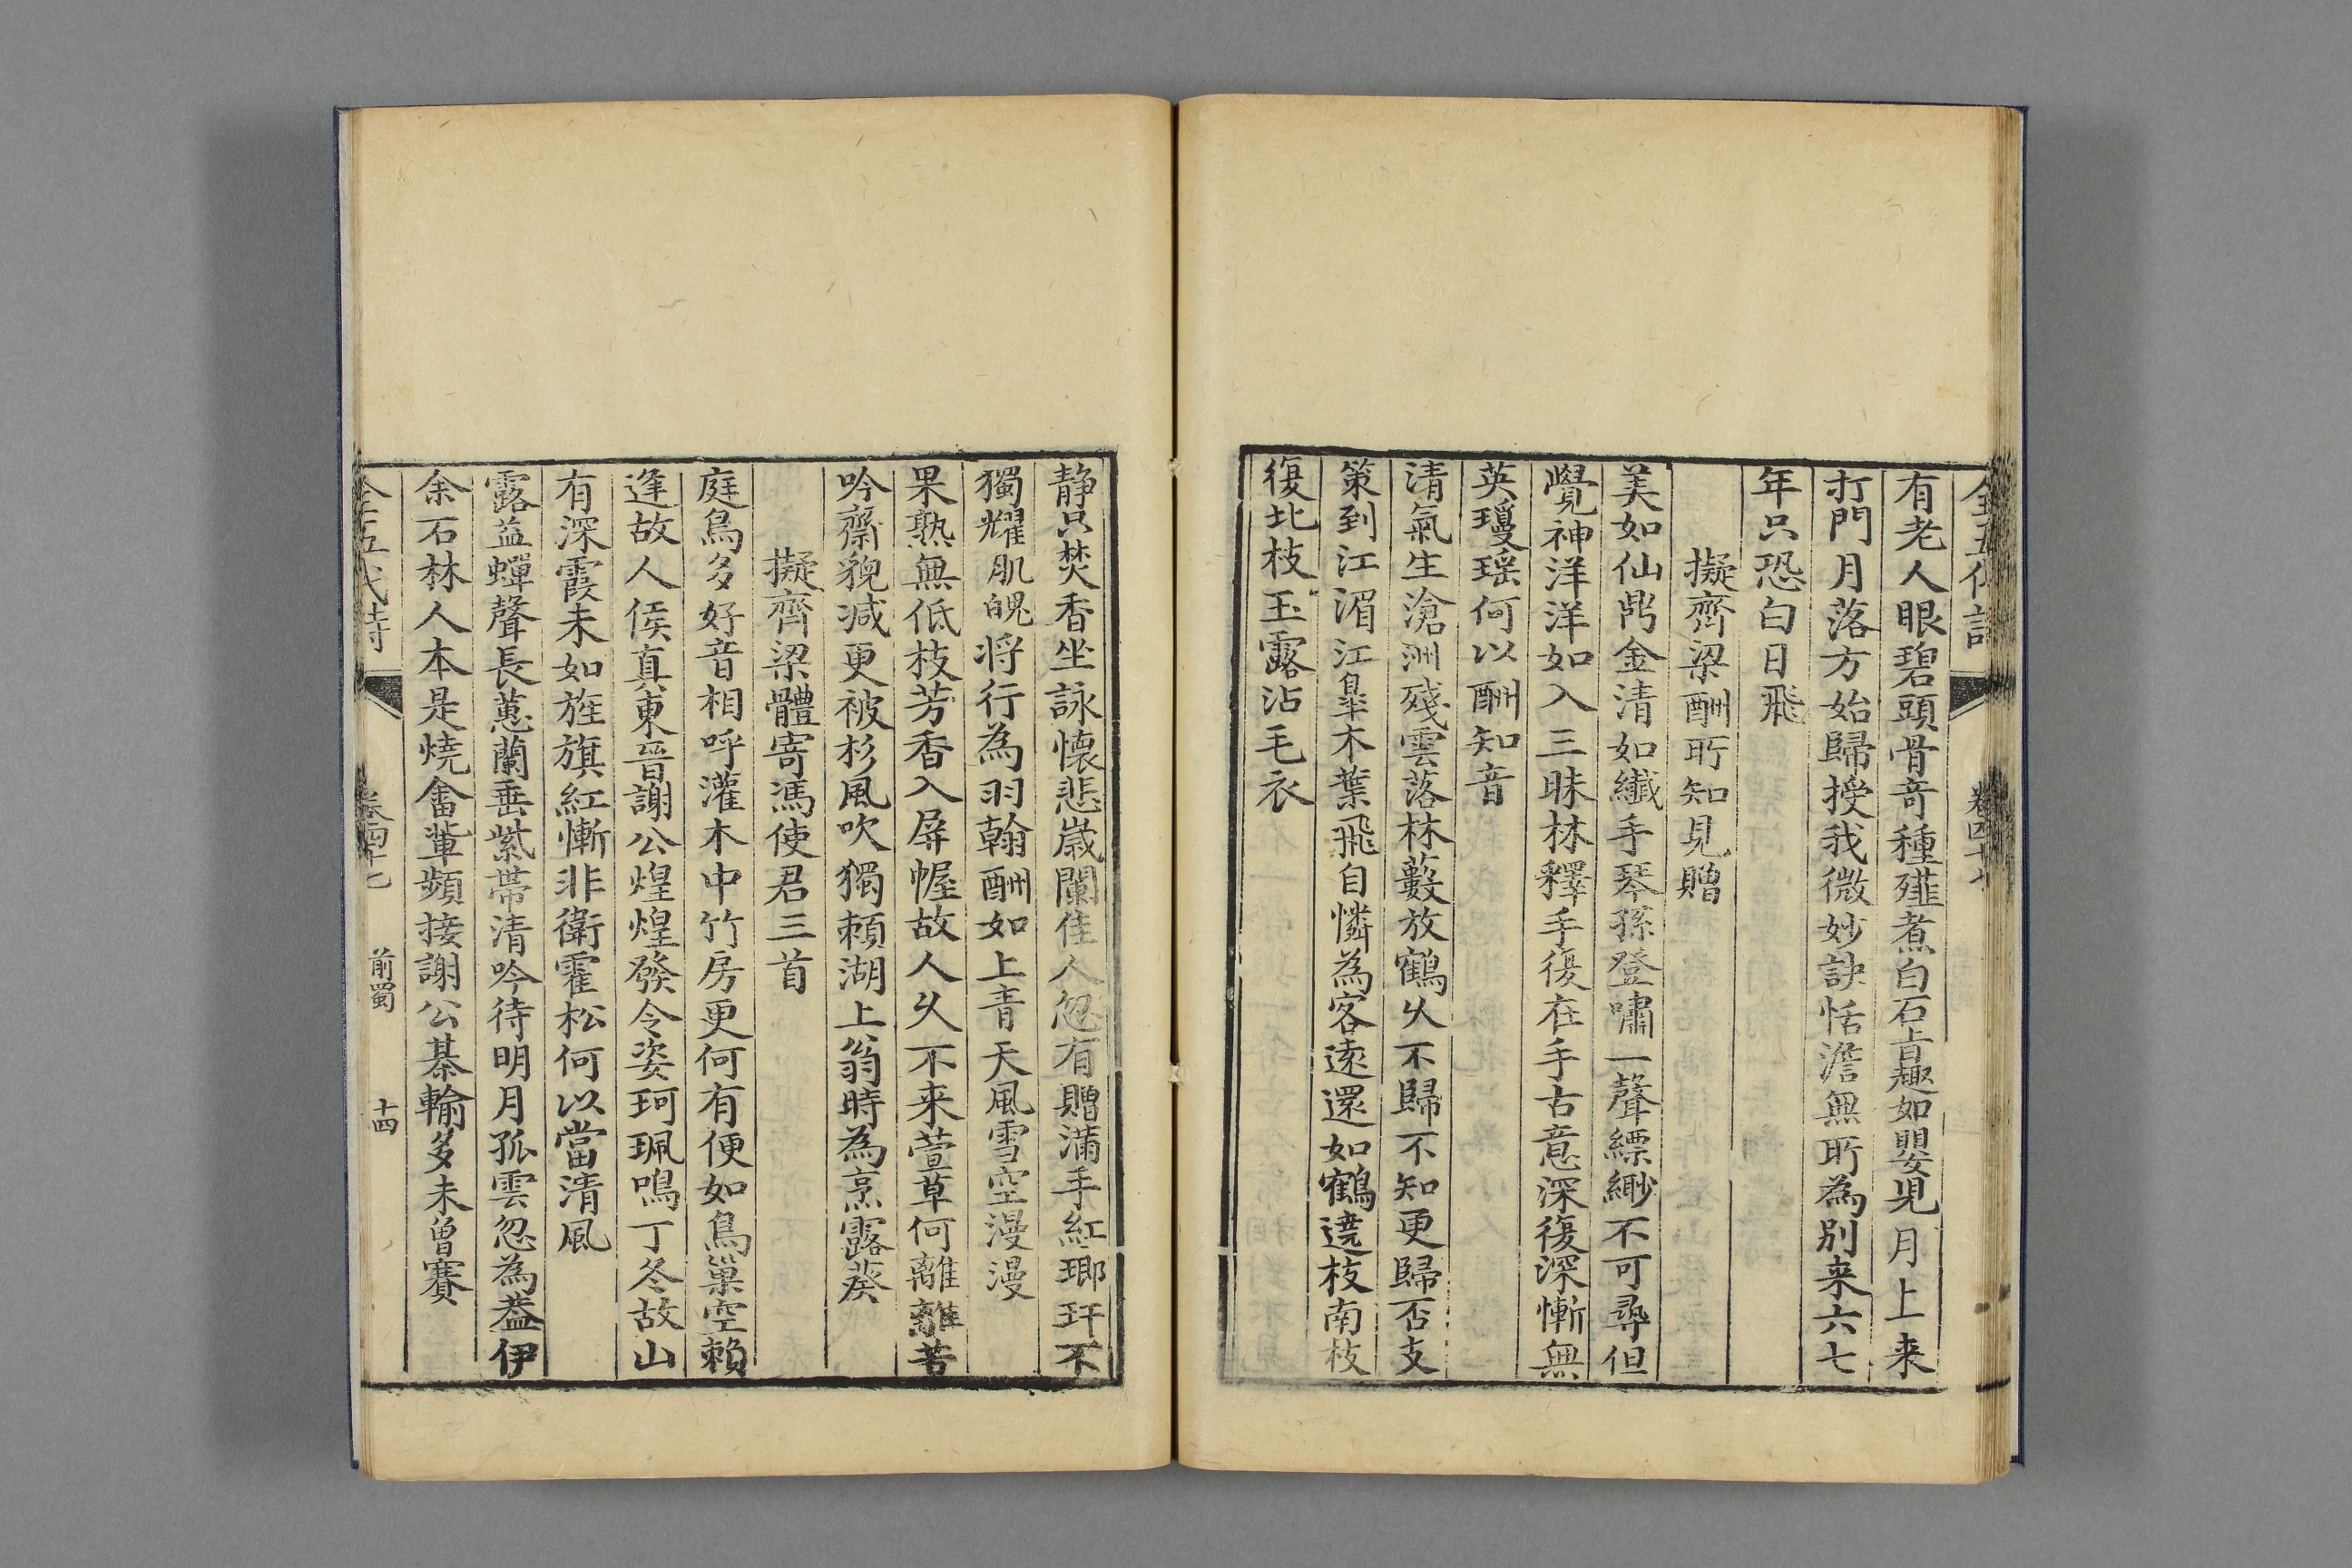 有老人眼碧頭骨竒種薤煮白石旨趣如嬰兒月上来
打門月落方始歸授我微妙訣恬澹無所為別来六七
年只恐白日飛
擬齊梁酬所知見贈
美如仙鼎金清如纎手琴孫登嘯一聲縹緲不可尋但
覺神洋洋如入三昧林釋手復在手古意深復深慚無
英瓊瑶何以酬知音
清氣生滄洲殘雲落林藪放鶴久不歸不知更歸否支
策到江湄江臯木葉飛自憐為客遠還如鶴遶枝南枝
復北枝玉露沾毛衣
靜只焚香坐詠懷悲嵗闌佳人忽有贈滿手紅瑯玕不
獨耀肌魄将行為羽翰酬如上青天風雪空漫漫
果熟無低枝芳香入屏幄故人久不来萱草何離離苦
吟齋貌減更被杉風吹獨頼湖上翁時為烹露葵
擬齊梁體寄馮使君三首
庭鳥多好音相呼灌木中竹房更何有便如鳥巢空頼
逢故人侯真東晉謝公煌煌發令姿珂珮鳴丁冬故山
有深霞未如旌旗紅慚非衛霍松何以當清風
露益蟬聲長蕙蘭垂紫帶清吟待明月孤雲忽為葢伊
余石林人本是燒畬輩頻接謝公棊輸多未曾賽
全五代詩
卷四十七
前蜀
十四